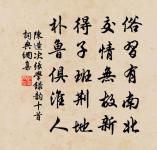 俗習有南北
交情無故新
得子班荊地
朴魯俱淮人
陳造次張學錄韻十首
詞典網集